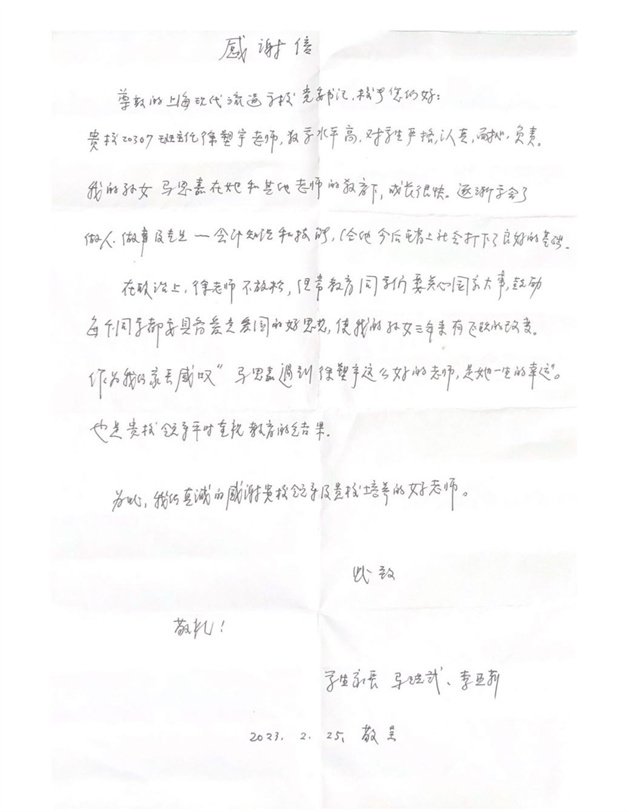 感谢信
尊敬的上海现代流通学校党委书记、校长您们好：
贵校20307班主任徐塑宇老师，教学水平高，对学生严格，认真，耐心，负责。
我的孙女马思嘉在她和其他老师的教育下，成长很快。逐渐学会了
做人、做事及专业一会计知识和技能，给他今后走上社会打下了良好的基础。
在政治上，徐老师不放松，经常教育同学们要关心国家大事，鼓励
每个同学都要具备爱党爱国的好思想，使我的孙女三年来有飞跃的改变。
作为我们家长感叹“马思嘉遇到徐塑宇这么好的老师，是她一生的幸运”。
也是贵校领导平时重视教育的结果。
为此，我们真诚的感谢贵校领导及贵校培养的好老师。
此致
敬礼！
学生家长 马 、李亚莉
2023. 2. 25. 敬呈